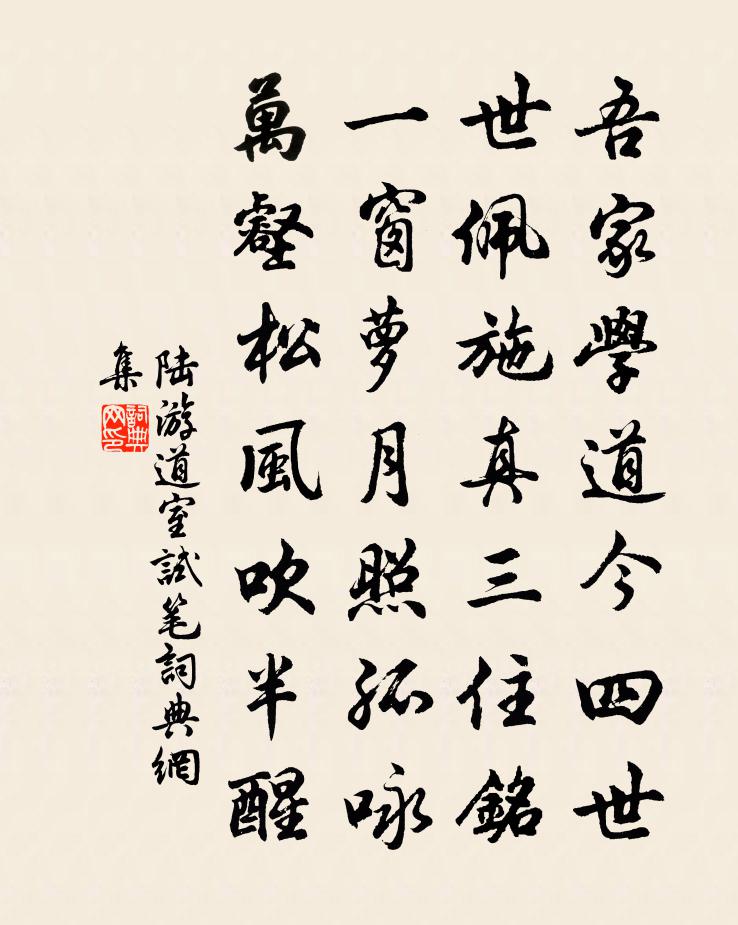 吾家學道今四世
世佩施真三住銘
一窗萝月照孤咏
萬壑松風吹半醒
陆游道室試笔詞典網
集
詞典
网印